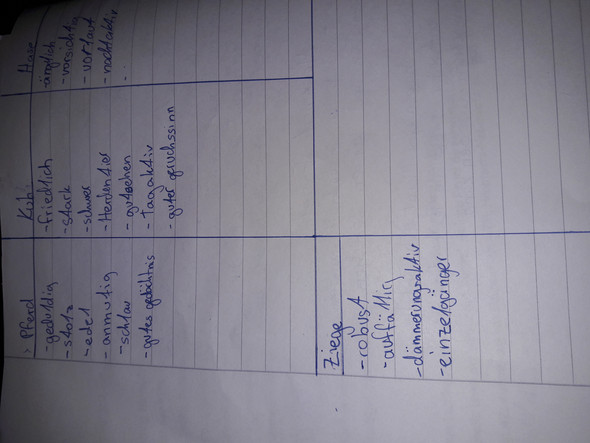 Pferd
- geduldig
- stolz
- edel
- anmutig
- schlau
- gutes gedächtnis
Kuh:
- friedlich
- stark
- schwer
- Herdentier
- gutsehen
- Tagaktiv
- guter geruchssinn
Hase
- ängstlich
- vorsichtig
- vorlaut
- nachtaktiv
Ziege
- robust
- auffällig
- dämmerungsaktiv
- einzelgänger